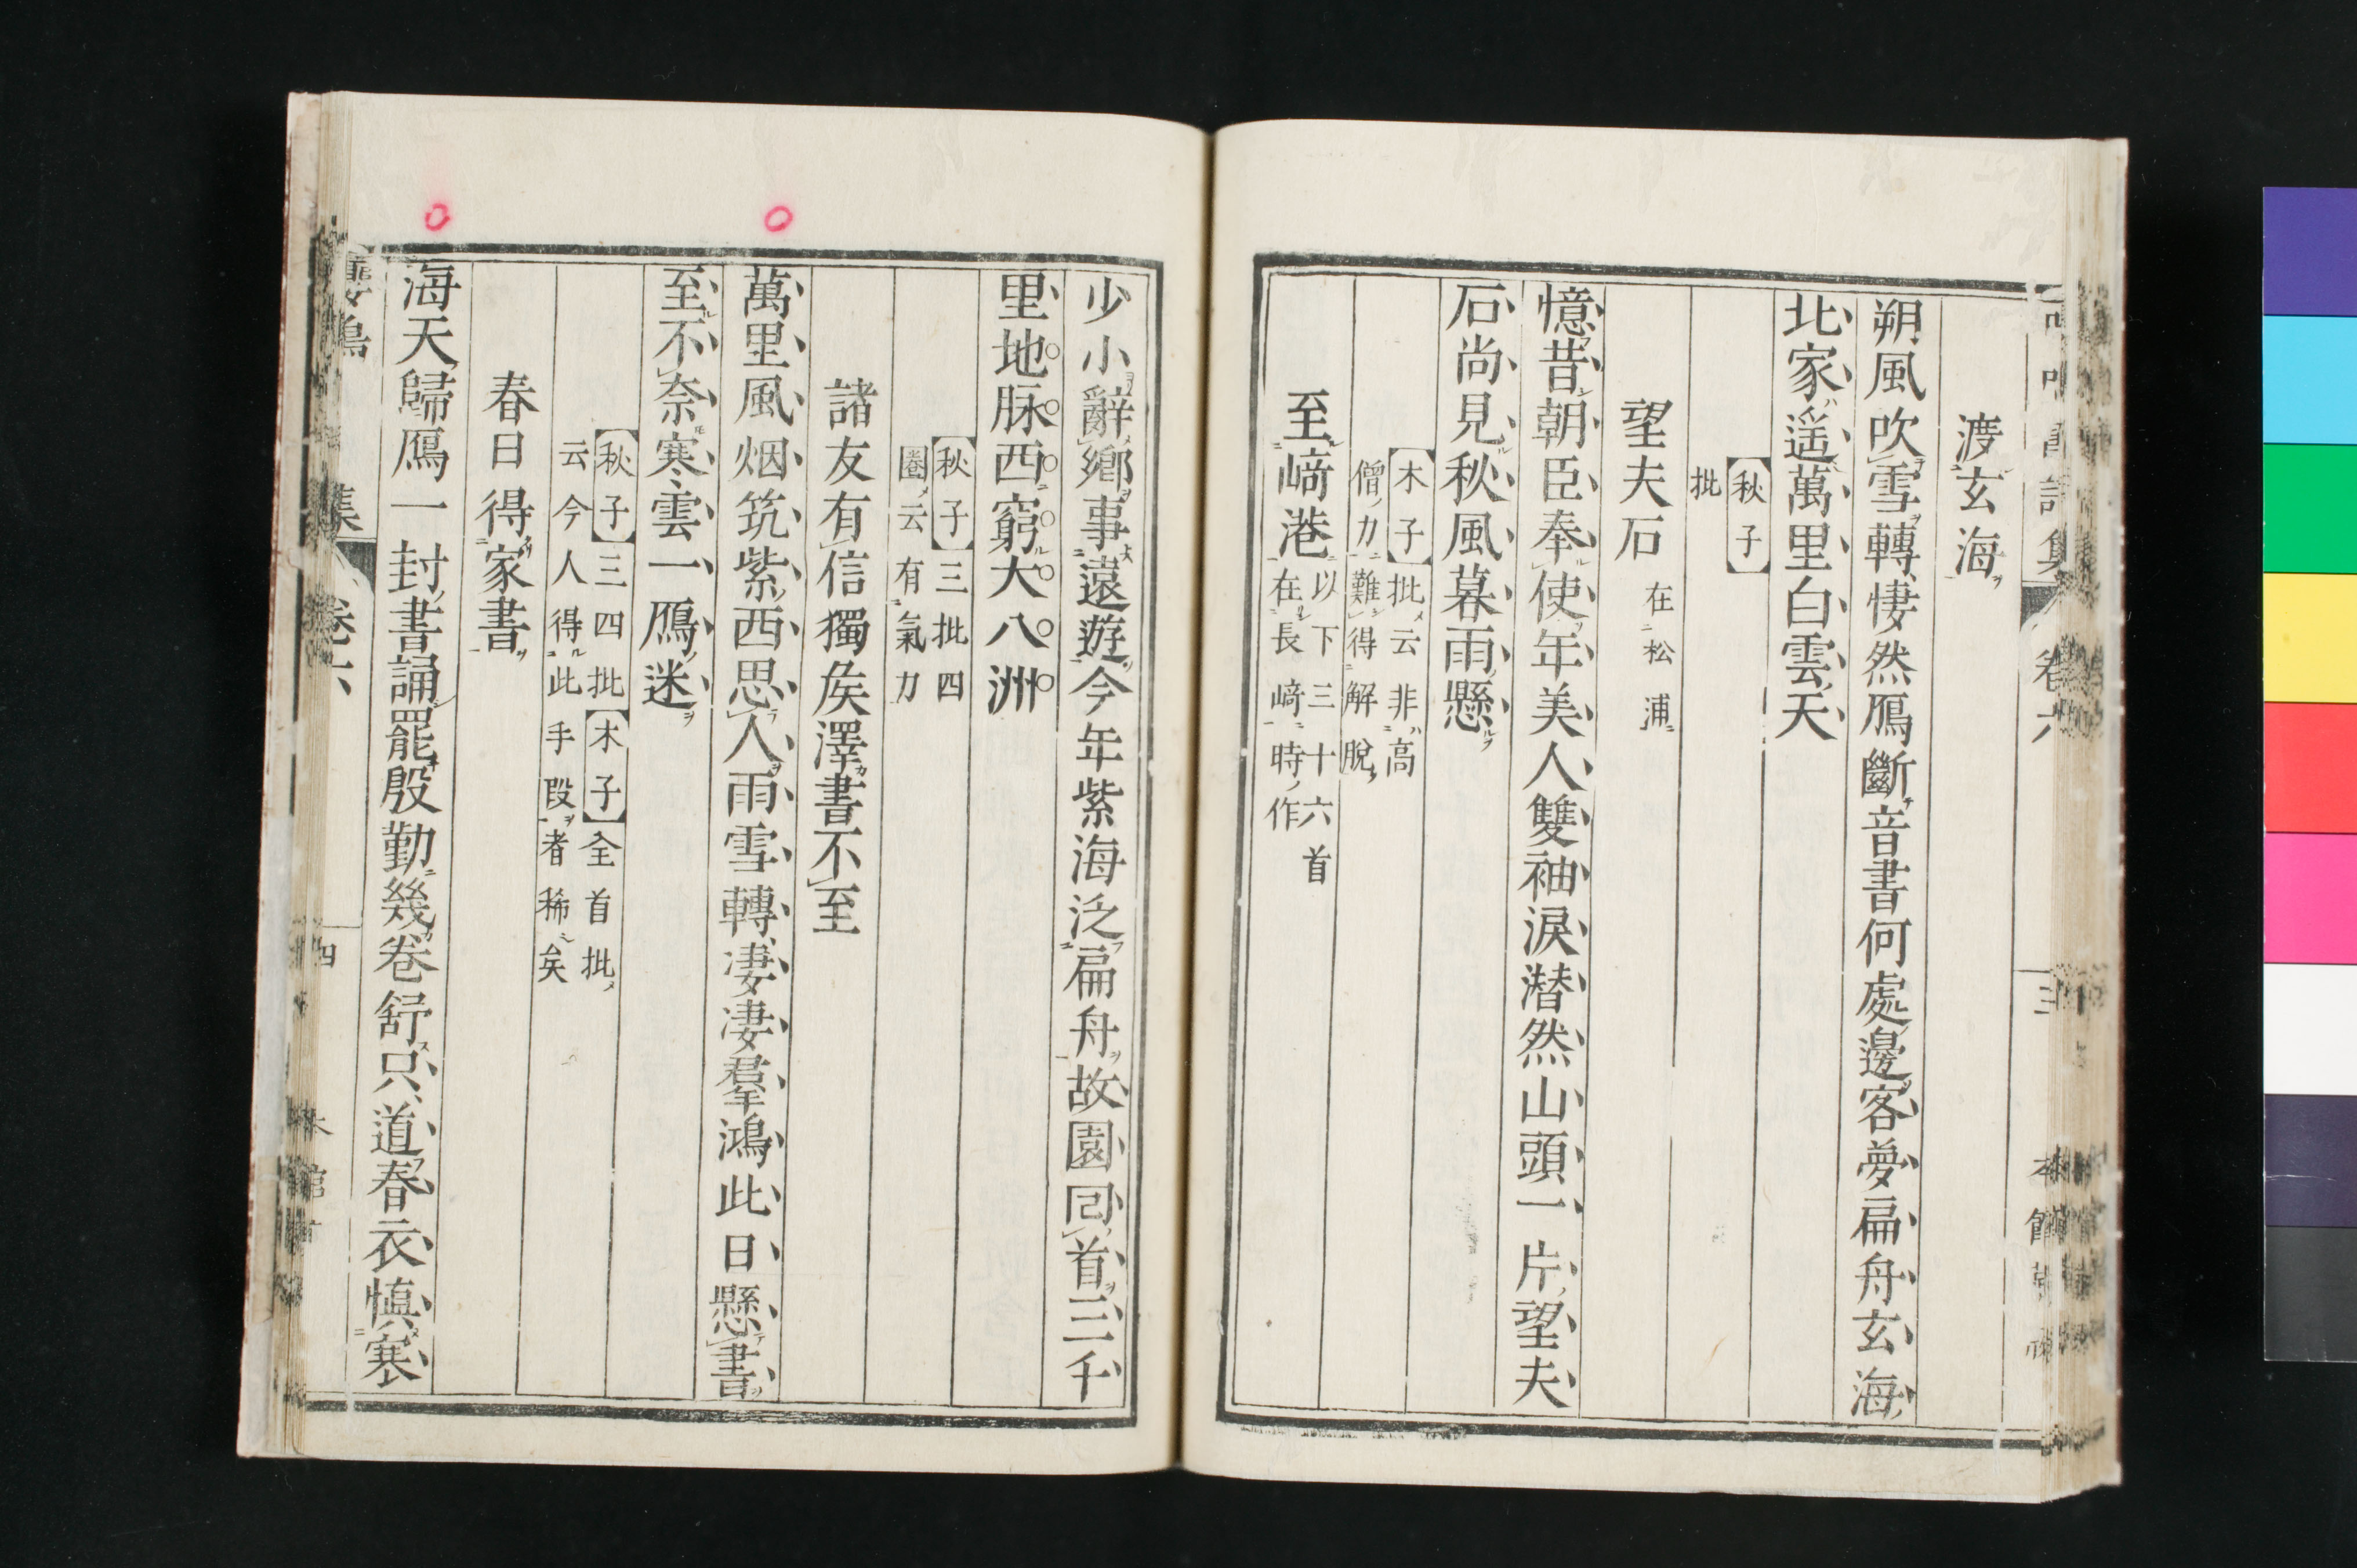 渡玄海
朔風吹雪轉悽然鴈斷音書何處邊客夢扁舟玄海
北家遥萬里白雲天
【秋子】
批
望夫石 在松浦
憶昔朝臣奉使年美人雙袖淚潸然山頭一片望夫
石尚見秋風暮雨懸
【木子】批云非高
僧力難得解脫
至﨑港 以下三十六首
在長﨑時作
少小辭鄉事遠遊今年紫海泛扁舟故園回首三千
里地脉西窮大八洲
【秋子】三批四
圈云有氣力
諸友有信獨矦澤書不至
萬里風烟筑紫西思人雨雪轉凄凄羣鴻此日懸書
至不奈寒雲一鴈迷
【秋子】三四批【木子】全首批
云今人得此手段者稀矣
春日得家書
海天歸鴈一封書誦罷殷勤幾卷舒只道春衣慎寒
集 卷六
四